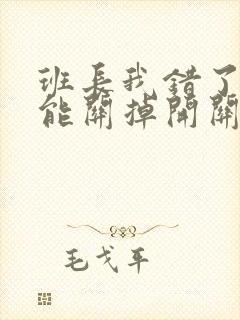 班长我错了
能關掉開關
毛戈平